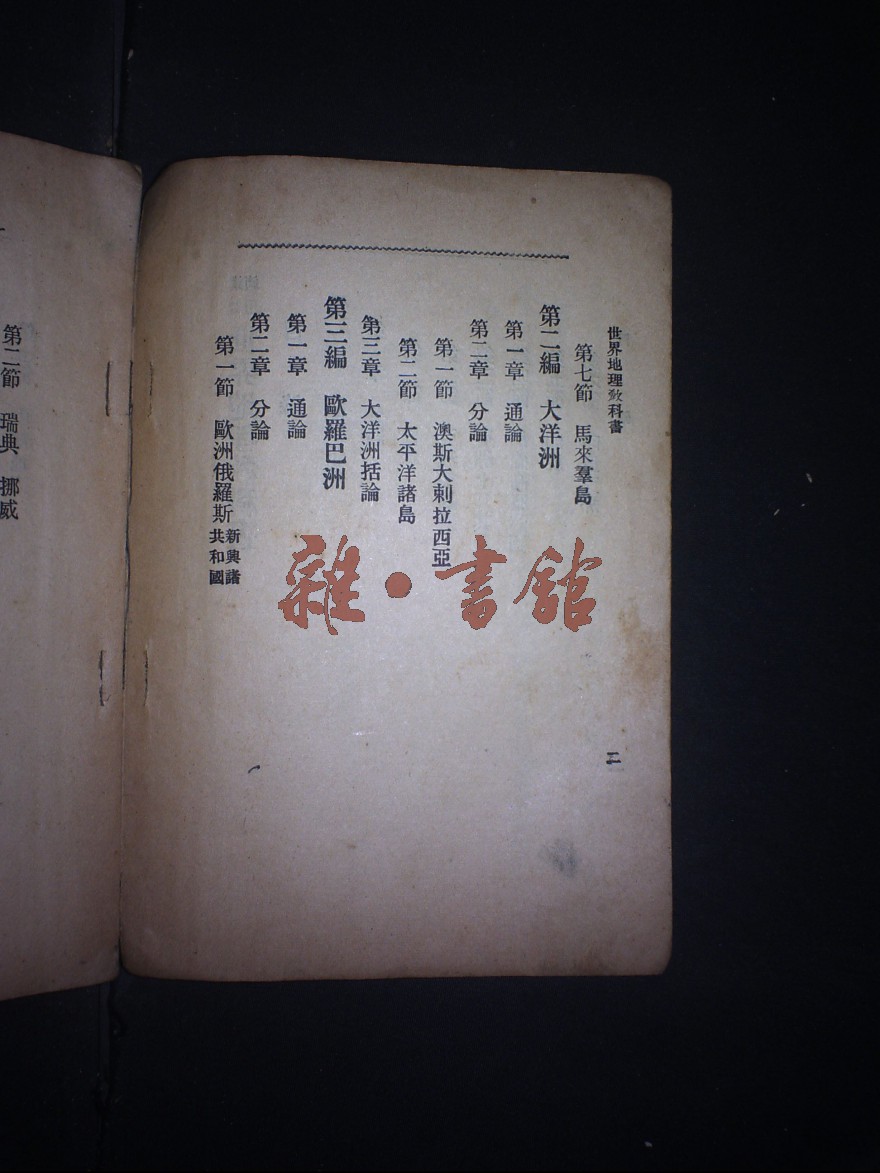 世界地理教科書
二
第七節 馬來羣島
第二編 大洋洲
第一章 通論
第二章 分論
第一節 澳斯大剌拉西亞
第二節 太平洋諸島
第三章 大洋洲括論
第三編 歐羅巴洲
第一章 通論
第二章 分論
第一節 歐洲俄羅斯 新興諸共和國
第二節 瑞典 挪威
雜·書館